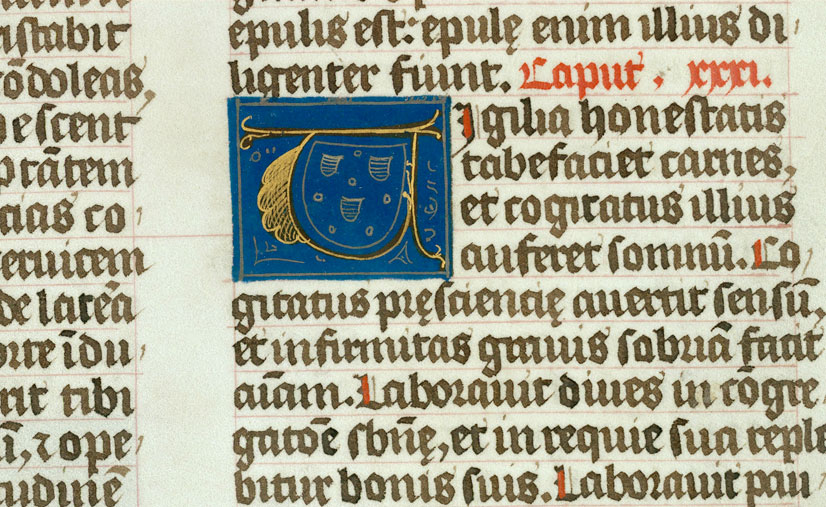 istabit
ōdoleas,
escent
tātem
cias co
ceruicem
de latēa
orte īdu
rit tibi
ope
tudinē
epulis est: epulę enim illius di
ligenter fiunt. Caput. xxxi.
VIgilia honestatis
tabefaciet carnes,
et cogitatus illius
auferet somnū. Co
gitatus pręsciencię auertit sensū,
et infirmitas grauis sobriā facit
aīam. Laborauit diues in cōgre
gatōe sbn̄ę, et in requie sua reple
bitur bonis suis. Laborauit pau